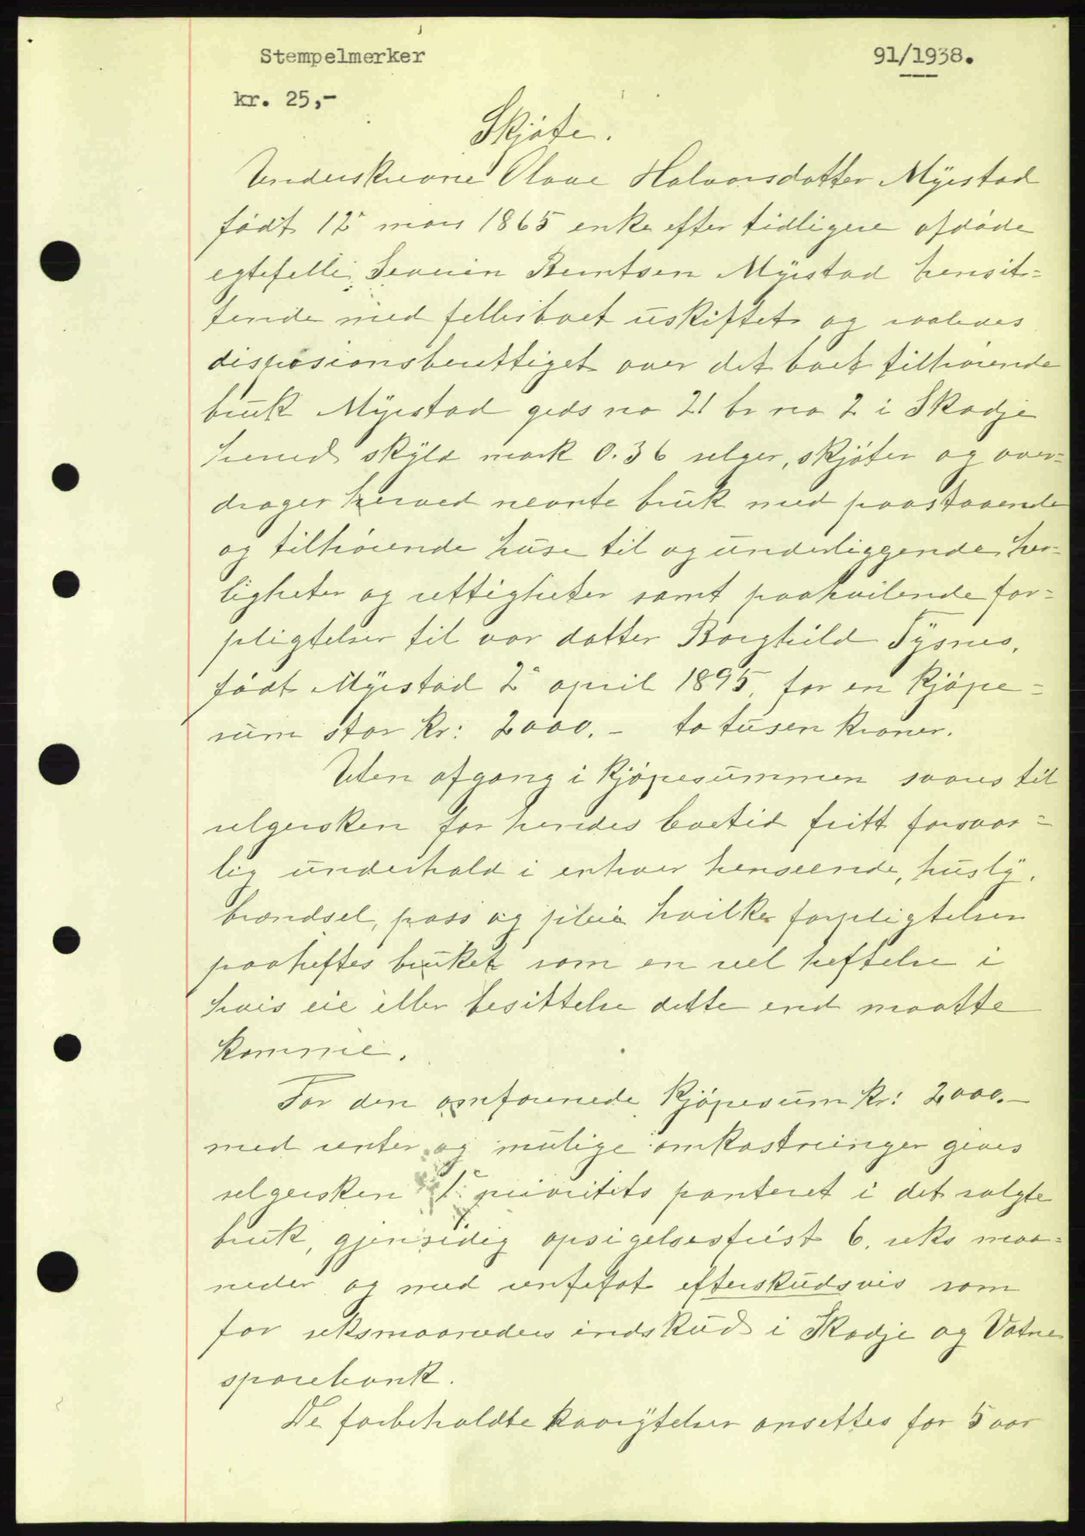 Stempelmerker 91/1938.
kr. 25,-
Skjøte.
Underskrevne Olave Halvorsdatter Myrstad
født 12te mars 1865 enke efter tidligere afdøde
egtefelle Severin Berntsen Myrstad hensit=
tende med fellesboet uskiftet og saaledes
disposionsberettiget over det boet tilhørende
bruk Myrstad gards no 21 br no 2 i Skodje
herred skyld mark 0.36 selger, skjøter og over=
drager herved nevnte bruk med paastaaende
og tilhørende huse til og underliggende her=
ligheter og rettigheter samt paahvilende for=
pligtelser til vor datter Borghild Tysnes,
født Myrstad 2en april 1895, for en kjøpe=
sum stor kr: 2000.- to tusen kroner.
Uten afgang i kjøpesummen svares til
selgersken for hendes levetid fritt forsvar=
lig underhold i enhver henseende, husly,
brændsel, pass og pleie hvilke forpligtelser
paaheftes bruket som en reel heftelse i
hvis eie eller besittelse dette end maatte
komme.
For den omforenede kjøpesum kr: 2000.-
med renter og mulige omkostninger gives
selgersken 1ste prioritets panteret i det solgte
bruk, gjensidig opsigelsesfrist 6. seks maa=
neder og med rentefot efterskudsvis som
for seksmaaneders indskud i Skodje og Vatne
sparebank.
De forbeholdte kaarytelser ansettes for 5 aar